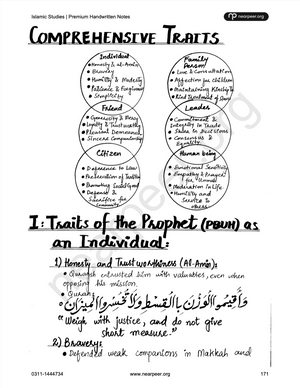 Islamic Studies | Premium Handwritten Notes
nearpeer.org
COMPREHENSIVE TRAITS
Individual
• Honesty & al-Amin
• Bravery
• Humility & Modesty
• Patience & Forgiveness
• Simplicity
Family Person
• Love & Consultation
• Affection for Children
• Maintaining Kinship
• Kind Treatment of
Friend
• Generosity & Mercy
• Loyalty & Trustworthy
• Pleasant Demeanor
• Sincere Companionship
Leader
• Commitment &
Integrity in Trade
• Shura in Decisions
• Consensus &
Equality
Citizen
• Obedience to Law
• Preservation of Tradition
• Promoting Social Good
• Defense &
Sacrifice for
Community
Human being
• Emotional Sensitivity
• Empathy & Prayer
for
• Moderation in Life
• Humility and
Service to
others
I: Traits of the Prophet (PBUH) as
an Individual:
1) Honesty and Trustworthiness (Al-Amin):
• Quraysh entrusted him with valuables, even when
opposing his mission.
• Quran:
وَأَقِيمُوا الْوَزْنَ بِالْقِسْطِ وَلَا تُخْسِرُوا الْمِيزَانَ
"Weigh with justice, and do not give
short measure."
2) Bravery:
• Defended weak companions in Makkah and
0311-1444734
www.nearpeer.org
171